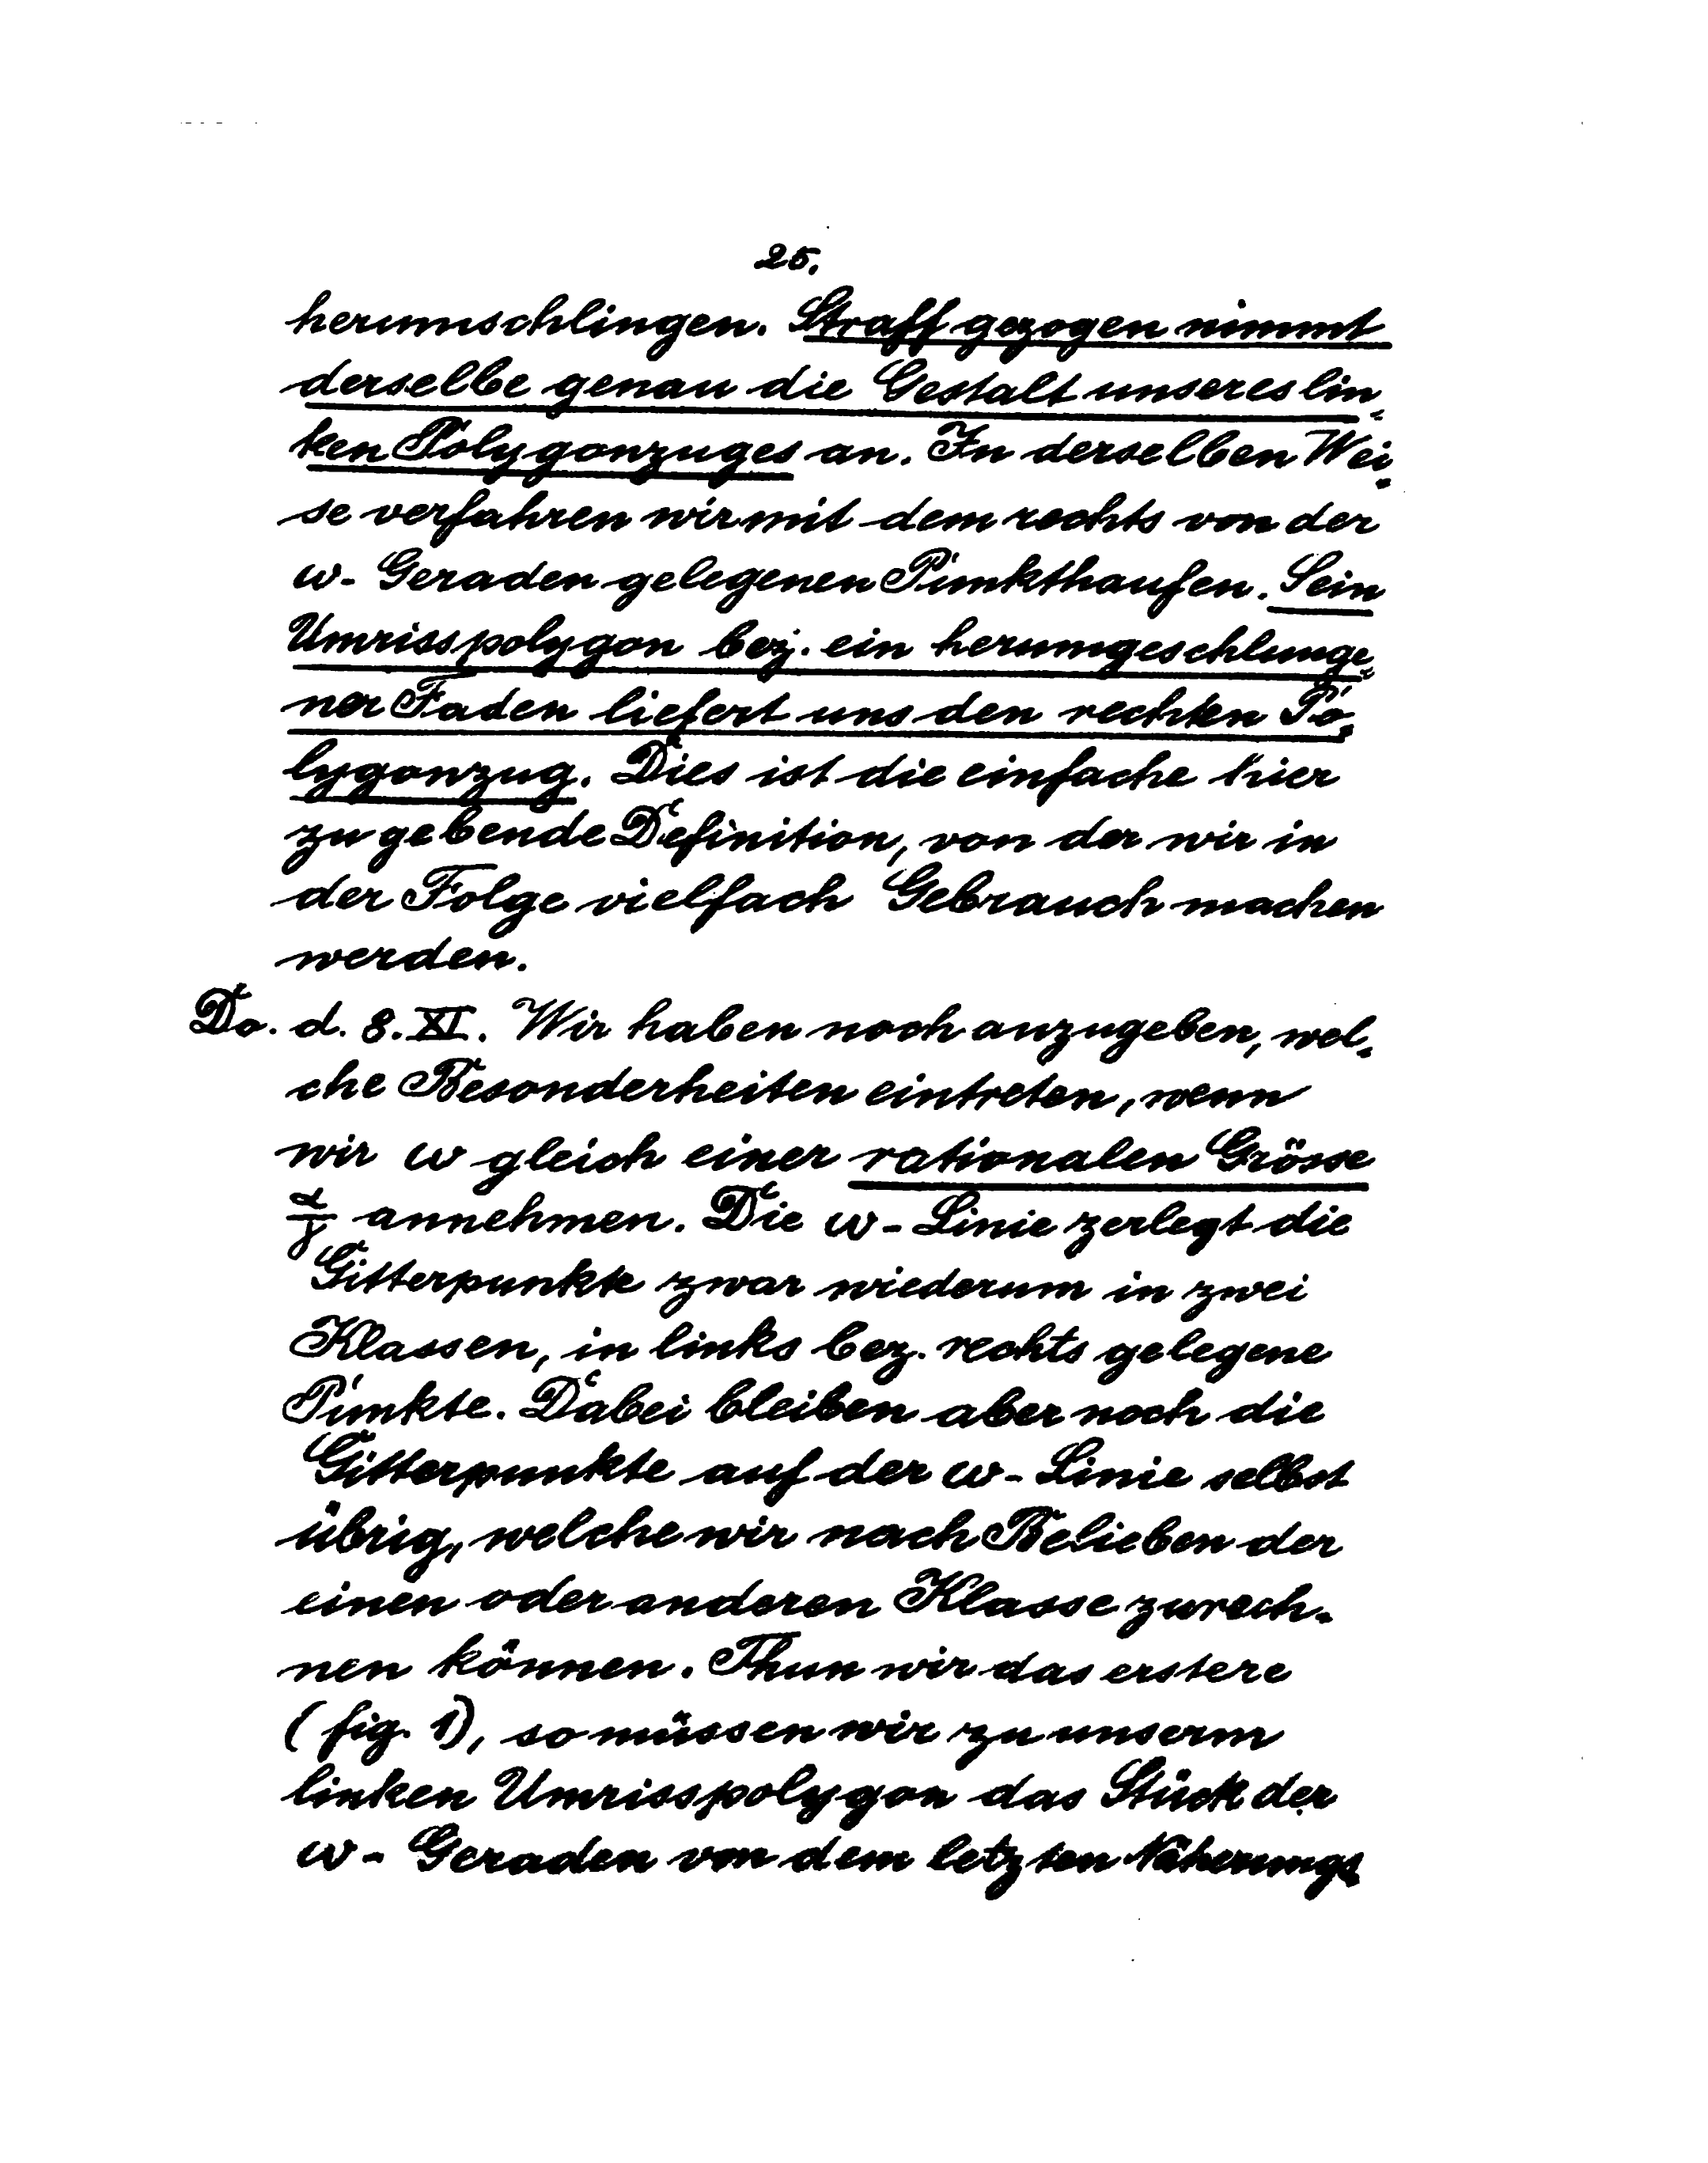 25.
herumschlingen. Straff gezogen nimmt
derselbe genau die Gestalt unseres lin-
ken Polygonzuges an. In derselben Wei-
se verfahren wir mit dem rechts von der
ω-Geraden gelegenen Punkthaufen. Sein
Umrisspolygon bez. ein herumgeschlunge-
ner Faden liefert uns den rechten Po-
lygonzug. Dies ist die einfache hier
zu gebende Definition, von der wir in
der Folge vielfach Gebrauch machen
werden.
Do. d. 8. XI. Wir haben noch anzugeben, wel-
che Besonderheiten eintreten, wenn
wir ω gleich einer rationalen Grösse
α/γ annehmen. Die ω-Linie zerlegt die
Gitterpunkte zwar wiederum in zwei
Klassen, in links bez. rechts gelegene
Punkte. Dabei bleiben aber noch die
Gitterpunkte auf der ω-Linie selbst
übrig, welche wir nach Belieben der
einen oder anderen Klasse zurech-
nen können. Thun wir das erstere
(fig. 1), so müssen wir zu unserm
linken Umrisspolygon das Stück der
ω-Geraden von dem letzten Näherungs-